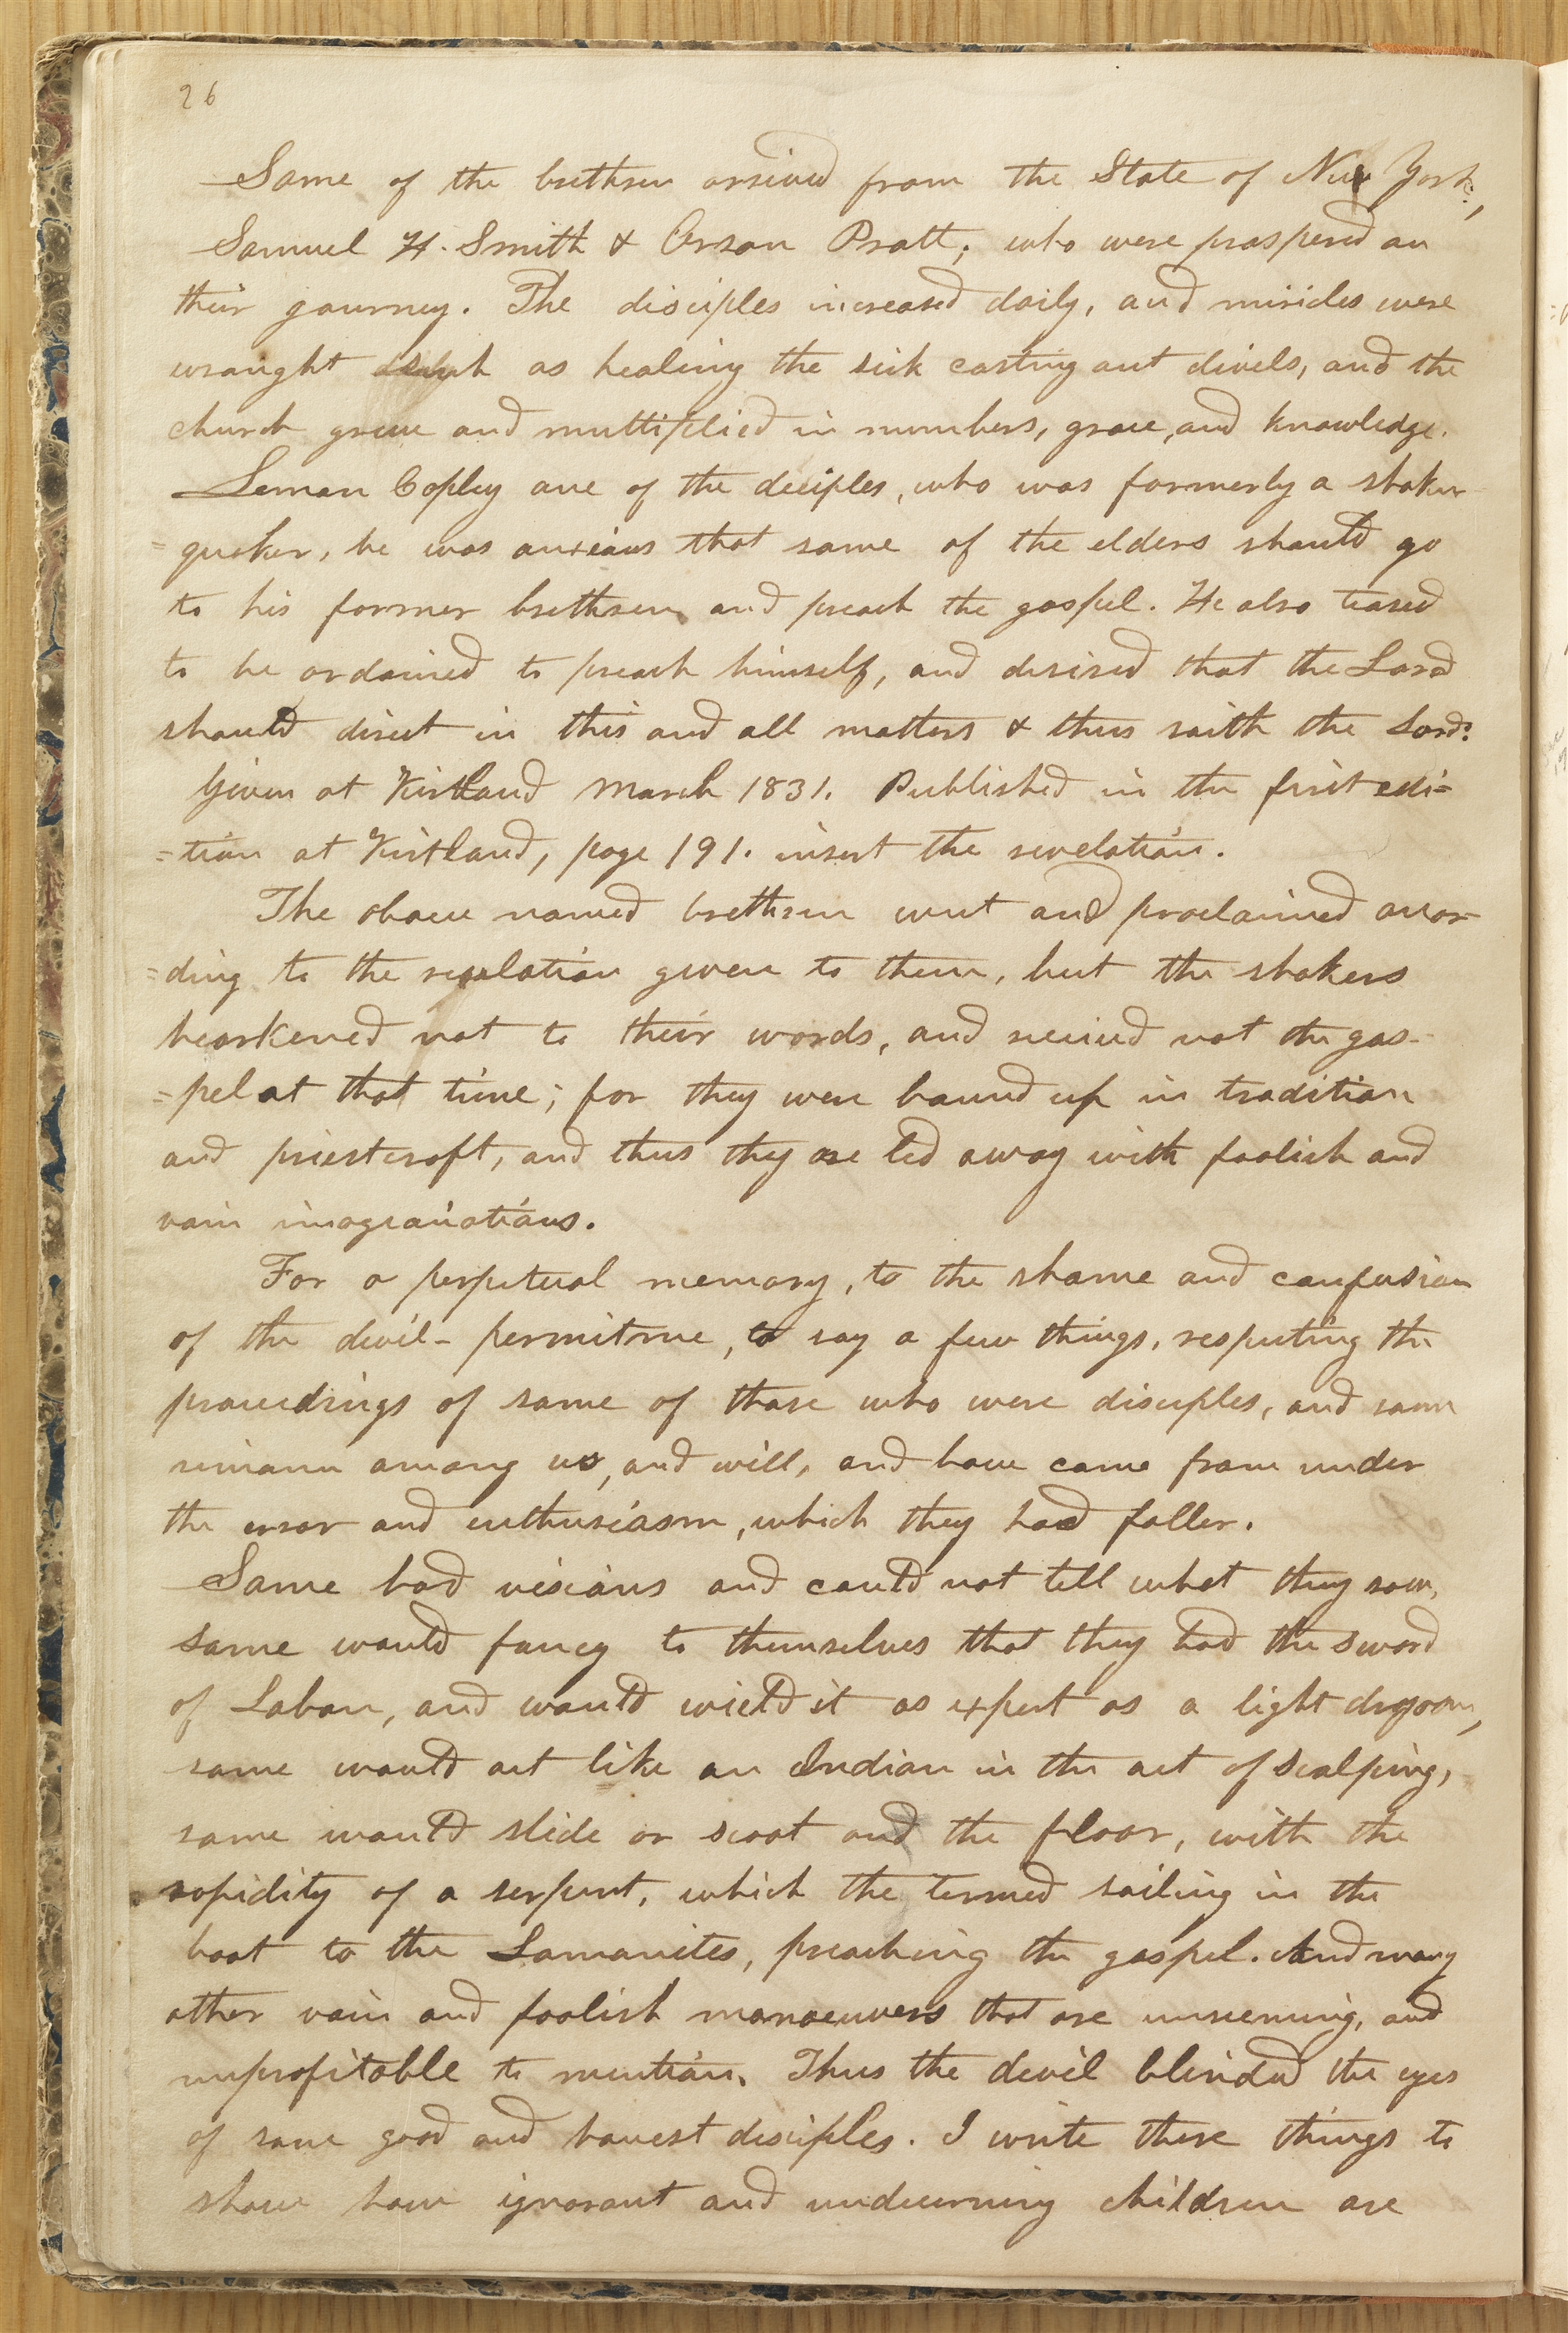 26
Some of the brethren arrived from the State of New York,
Samuel H. Smith & Orson Pratt, who were prospered on
their journey. The disciples increased daily, and miricles were
wraught such as healing the sick casting out divels, and the
church grew and multiplied in numbers, grace, and knowledge.
Leman Copley one of the deciples, who was formerly a shaker
=quaker, he was anxious that some of the elders should go
to his former brethren and preach the gospel. He also teased
to be ordained to preach himself, and desired that the Lord
should direct in this and all matters & thus saith the Lord:
Given at Kirtland March 1831. Published in the first edi=
=tion at Kirtland, page 191. insert the revelation.
The above named brethren went and proclaimed accor-
=ding to the revelation given to them, but the shakers
hearkened not to their words, and received not the gos-
=pel at that time; for they were bound up in tradition
and priestcraft, and thus they are led away with foolish and
vain imaginations.
For a perpetual memory, to the shame and confusion
of the devil- permit me, to say a few things, respecting the
proceedings of some of those who were disciples, and some
remain among us, and will, and have come from under
the error and enthusiasm, which they had faller.
Some had visions and could not tell what they saw,
some would fancy to themselves that they had the sword
of Laban, and would wield it as expert as a light dragoon,
some would act like an Indian in the act of scalping,
some would slide or scoot and the floor, with the
rapidity of a serpent, which the termed sailing in the
boat to the Lamanites, preaching the gospel. And many
other vain and foolish manoeuvers that are unseeming, and
unprofitable to mention. Thus the devil blinded the eyes
of some good and honest disciples. I write these things to
show how ignorant and undiscerning children are